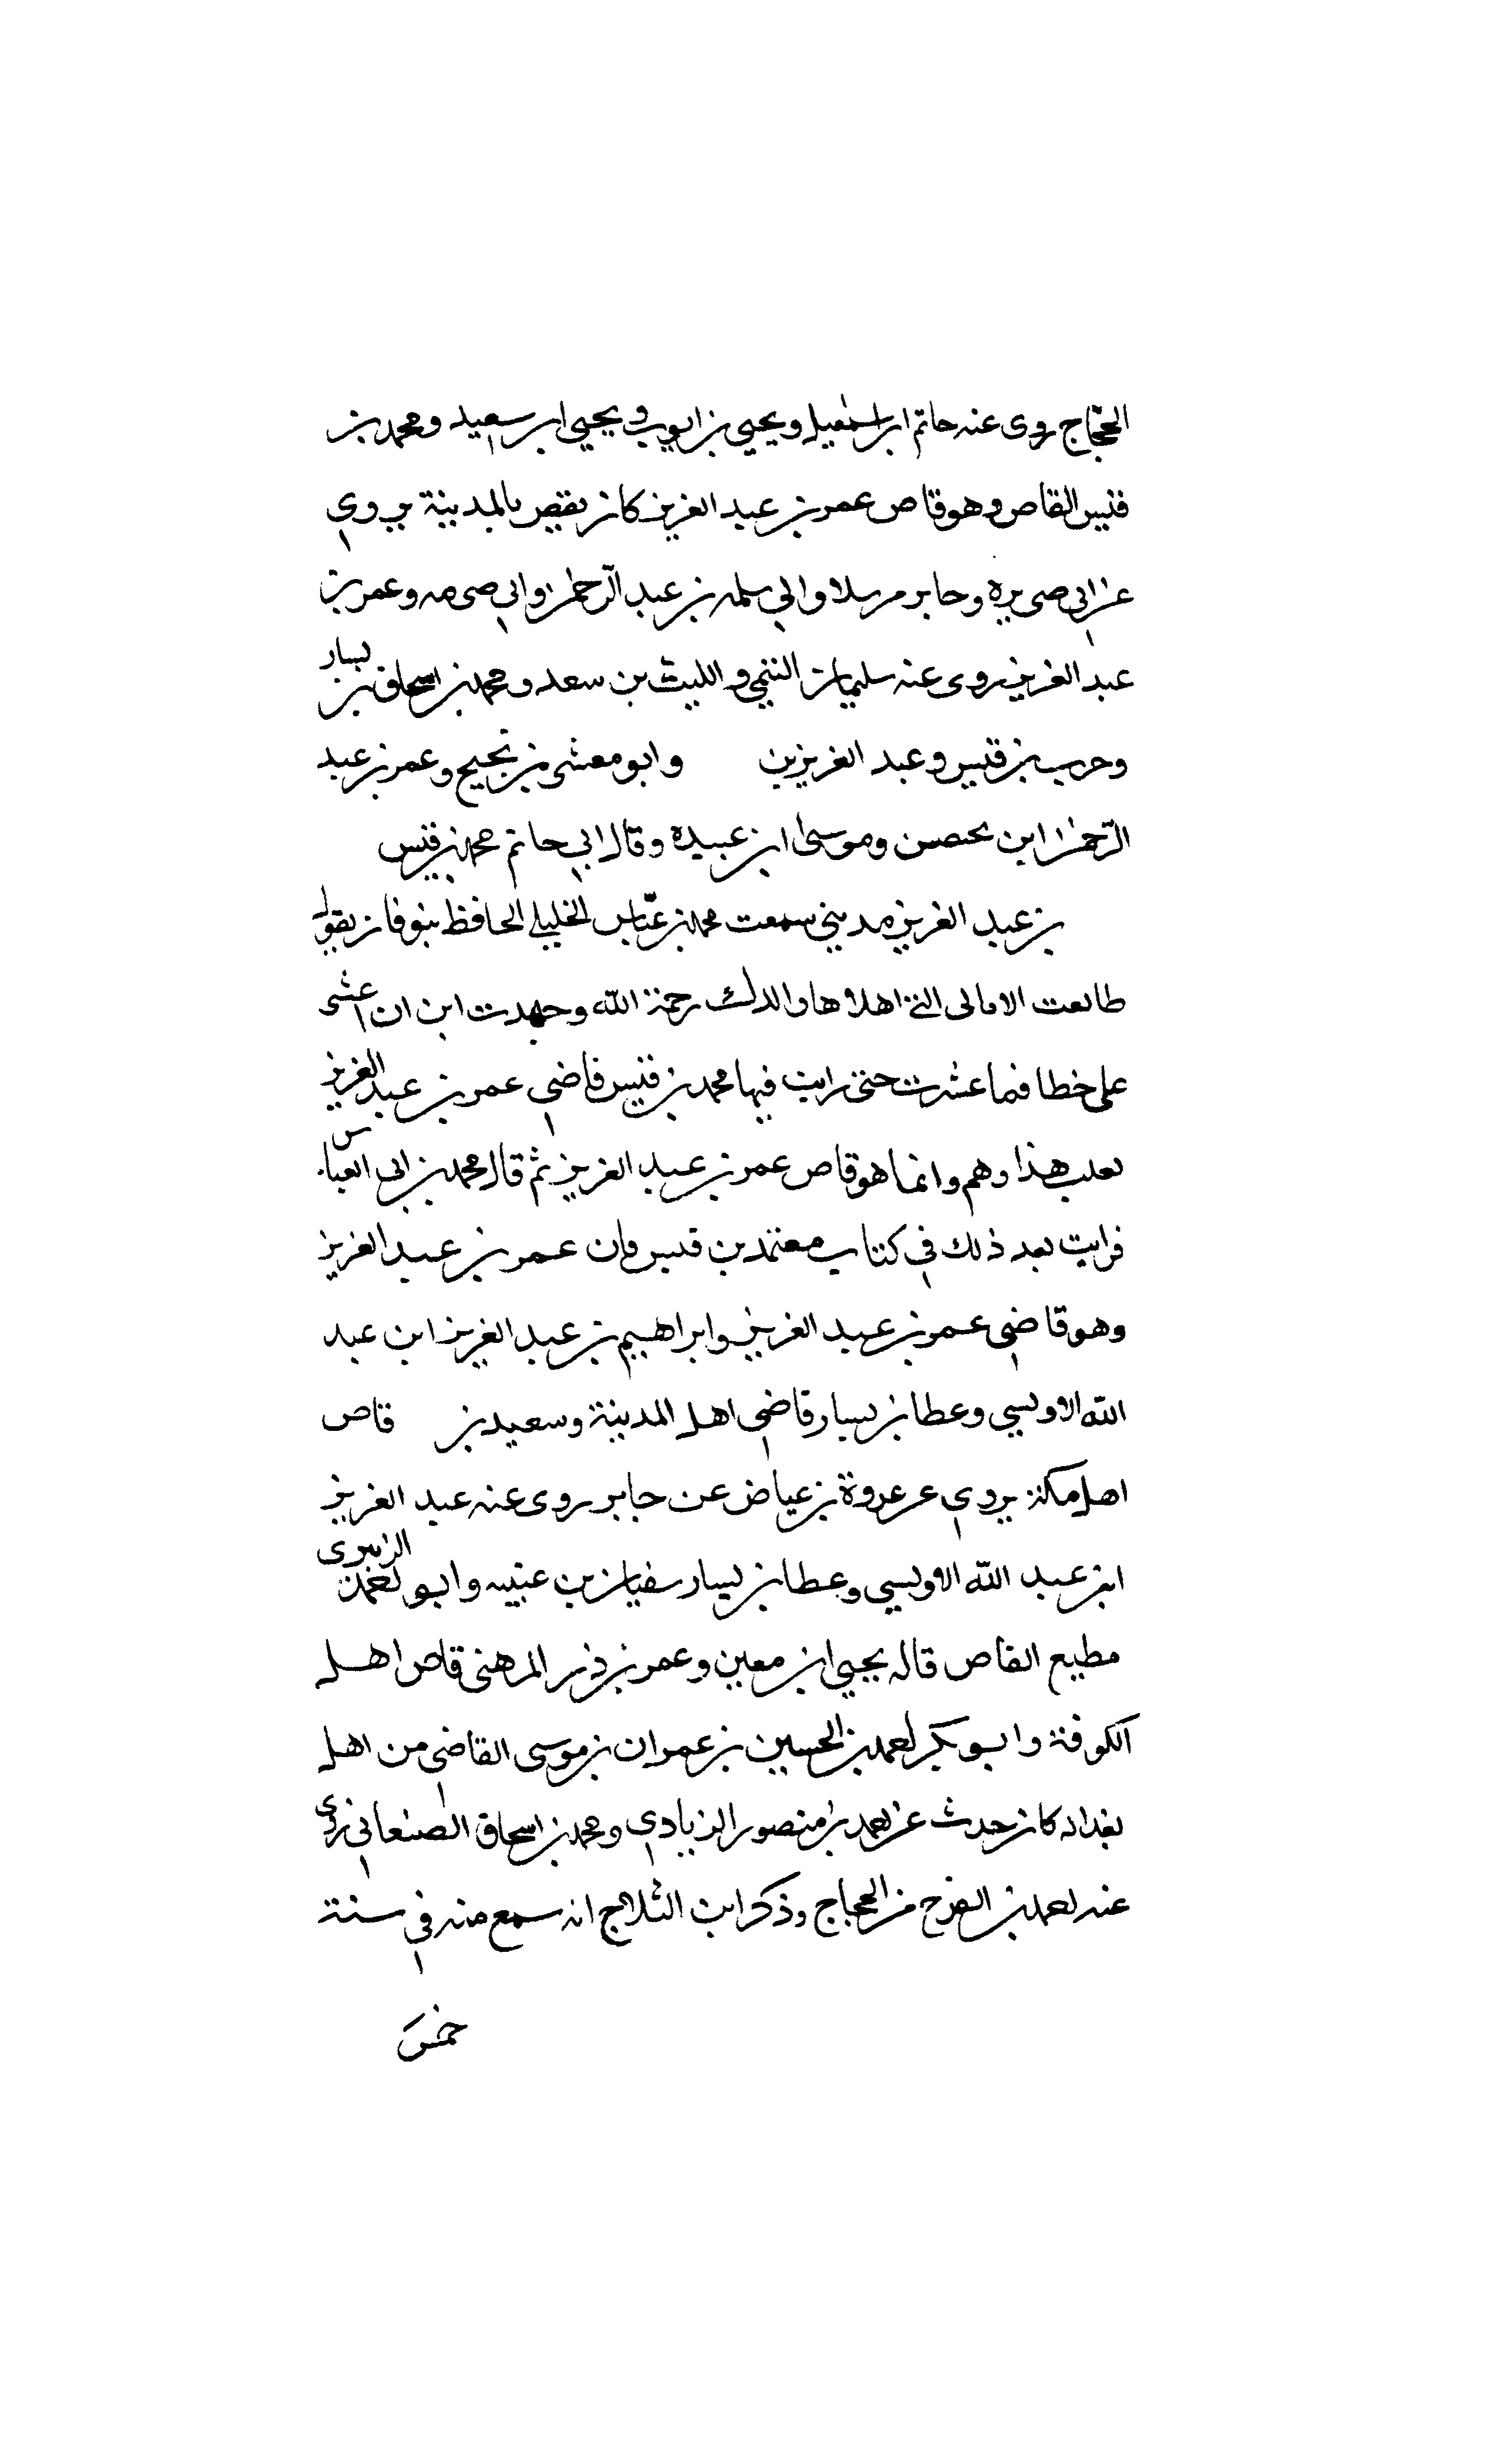 الحجاج روى عنه حاتم ابن اسمعيل ويحيى بن ايوب ويحيى ابن سعيد ومحمد بن
قيس القاص وهو قاص عمر بن عبد العزيز كان يقص بالمدينة يروى
عن ابى صىىره وجابر مرسلا وابي سلمه بن عبد الرحمن وابى صىمه وعمر بن
عبد العزيز روى عنه سليمان التيمي والليث بن سعد ومحمد بن اسحاق بن يسار
وحرب بن قيس وعبد العزيز بن وابو معشر بن نجيح وعمر بن عبد
الرحمن ابن محصن وموسى ابن عبيدة وقال ابى حاتم محمد بن قيس
بن عبد العزيز مديني سمعت محمد بن عباس الخليلي الحافظ بنوقان يقول
طالعت الامالى التى املاها والدك رحمة الله وجهدت ابن ان اعثر
على خطا فما عثرت حتى رايت فيها محمد بن قيس قاضي عمر بن عبد العزيز
فعلت هذا وهم وانما هو قاص عمر بن عبد العزيز ثم قال محمد بن ابى العباس
فرايت بعد ذلك في كتاب معتمد بن قيس فان عمر بن عبد العزيز
وهو قاضي عمر بن عبد العزيز وابراهيم بن عبد العزيز ابن عبد
الله الاويسي وعطا بن يسار قاضي اهل المدينة وسعيد بن قاص
اهل مكة يروي عن عروة بن عياض عن جابر روى عنه عبد العزيز
ابن عبد الله الاويسي وعطا بن يسار سفيان بن عتيبه وابو احمد الزبيرى
مطيع القاص قاله يحيى ابن معين وعمر بن ذر المرهنى قاص اهل
الكوفة وابو بكر احمد بن الحسين بن عمران بن موسى القاضي من اهل
بغداد كان حدث عن احمد بن منصور الزيادي ومحمد بن اسحاق الصنعاني روى
عنه احمد بن الفرج من الحجاج وذكر ابن الثلاج انه سمع منه في سنة
خمس